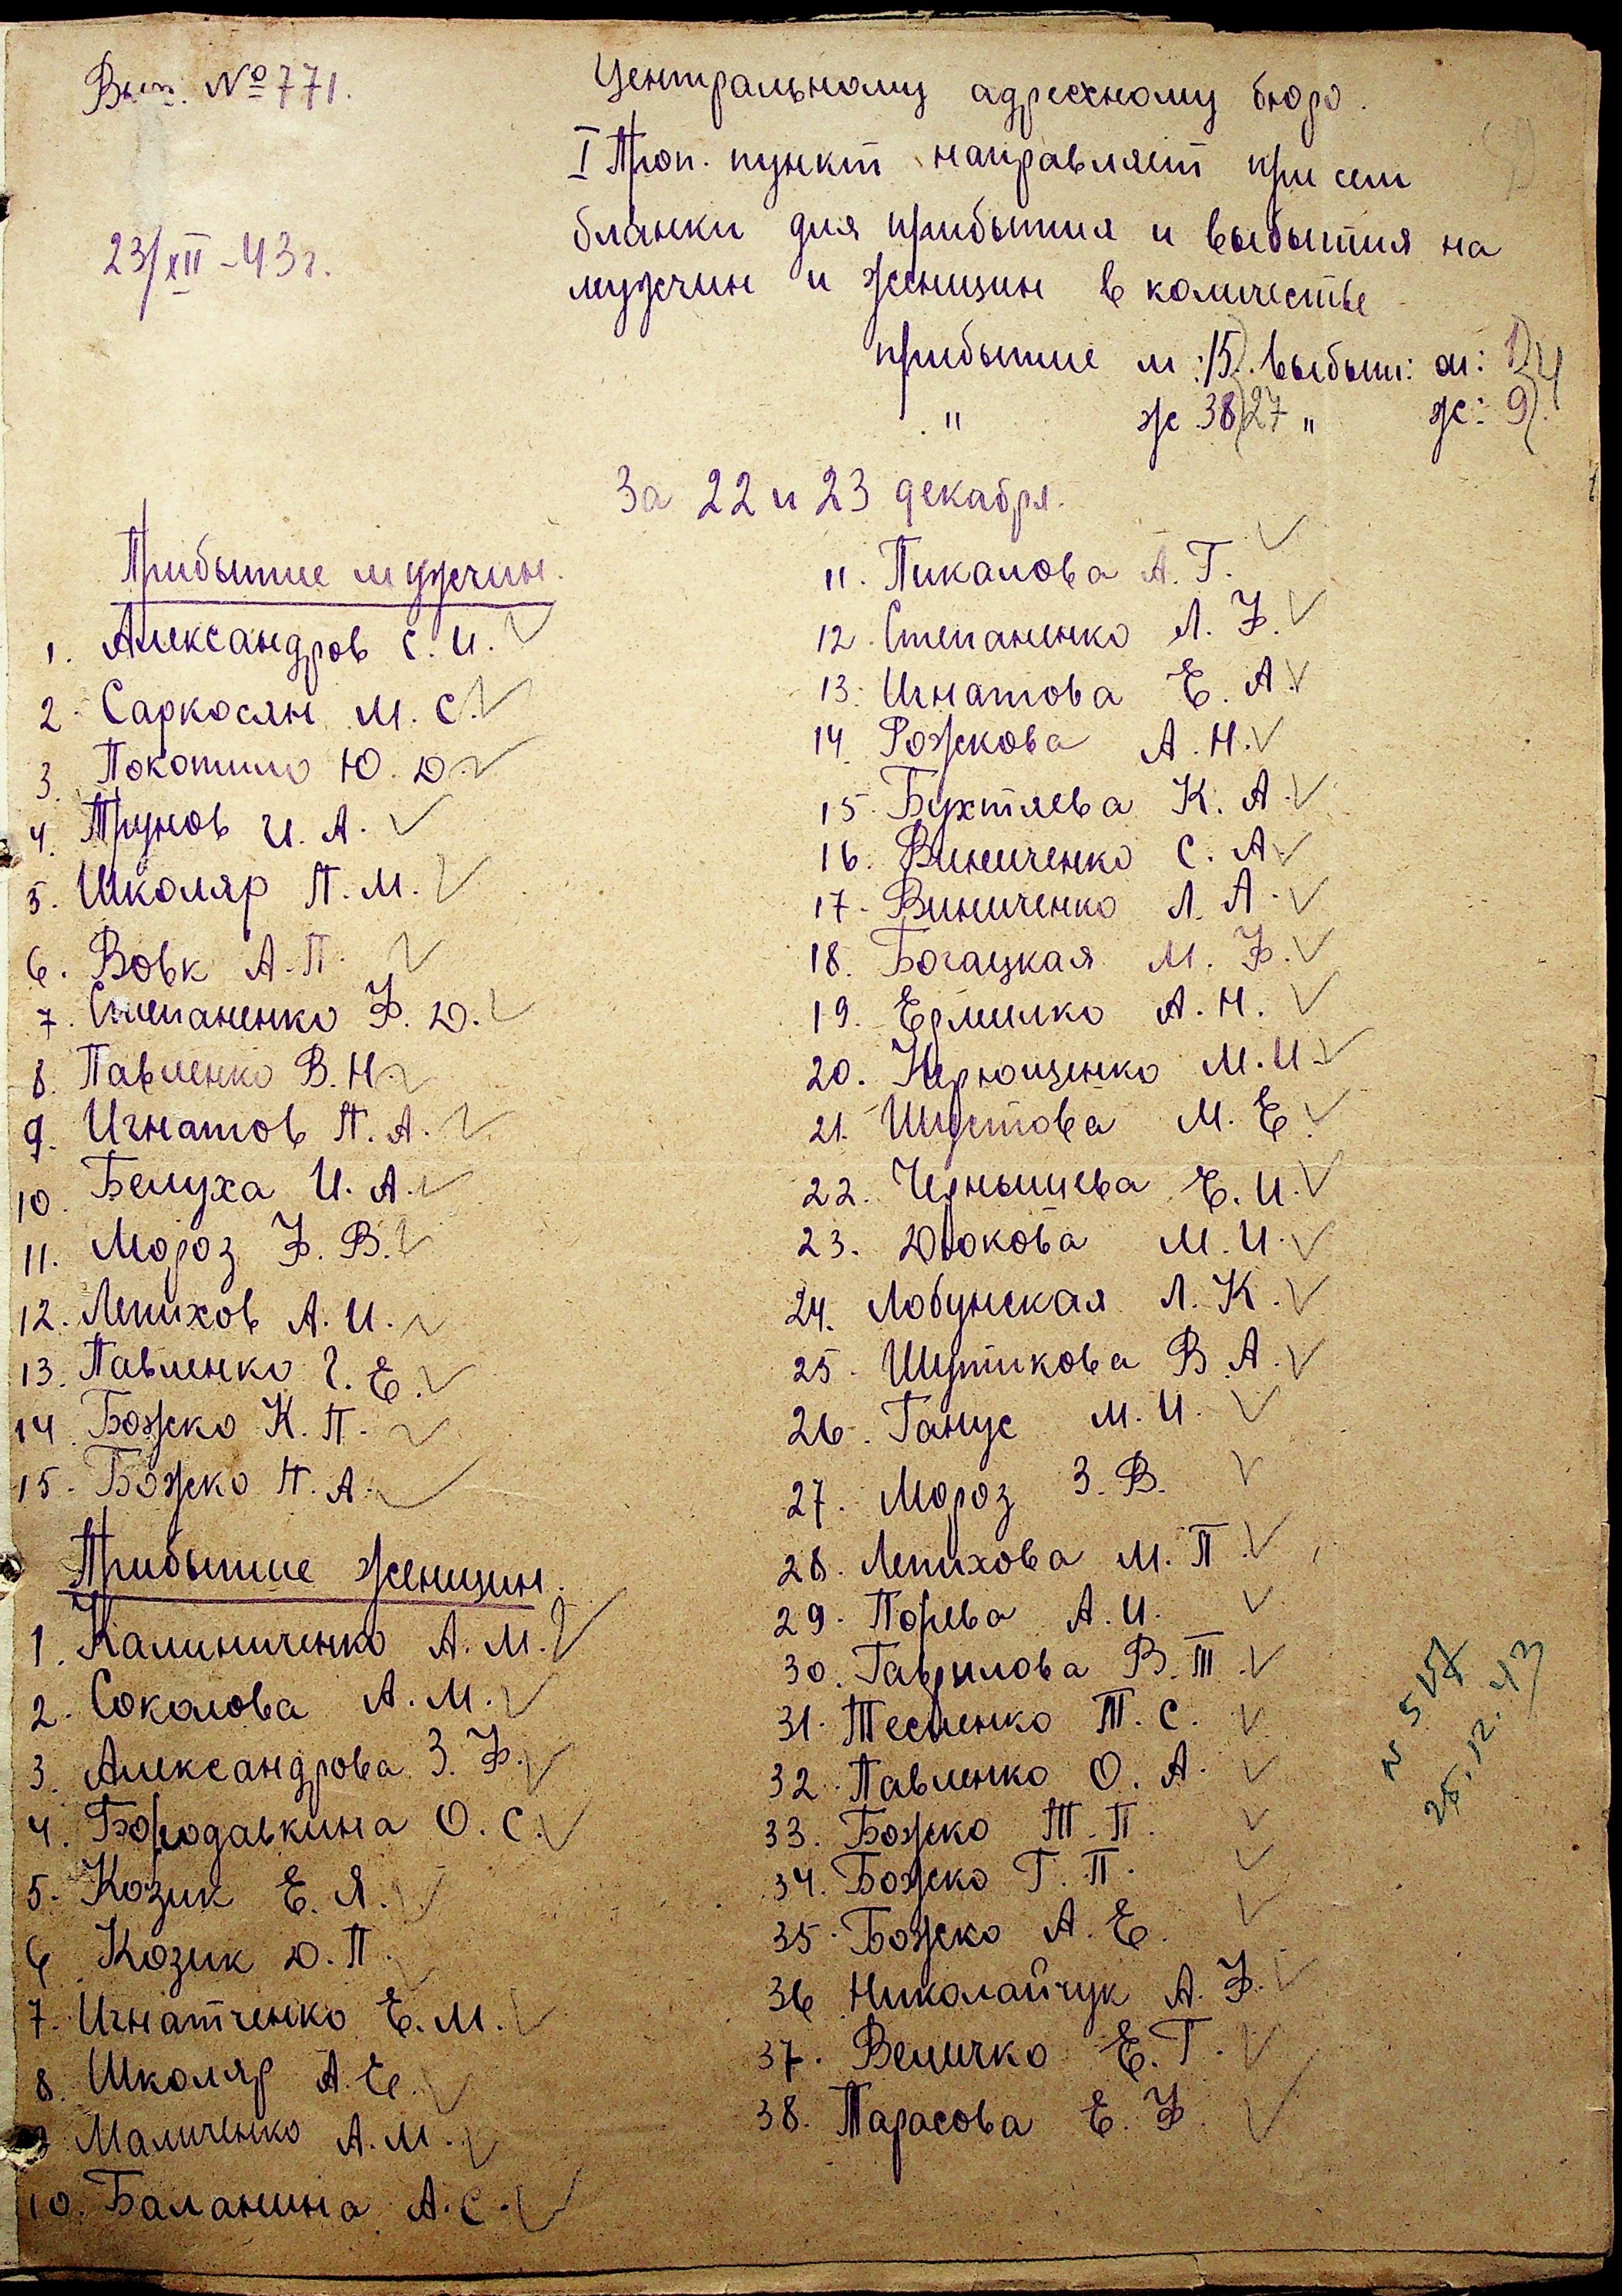 Вып. № 771.
23/XII-43г.
Центральному адресному бюро.
I Проп. пункт направляет при сем
бланки для прибытия и выбытия на
мужчин и женщин в количестве
прибытие м: 15. выбыт: м:
" ж 38 27 " ж: 9
За 22 и 23 декабря.
Прибытие мужчин.
1. Александров С. И.
2. Саркосян М. С.
3. Покотило Ю. Д.
4. Трунов И. А.
5. Школяр П. М.
6. Вовк А. П.
7. Степаненко Ф. Д.
8. Павленко В. Н.
9. Игнатов П. А.
10. Белуха И. А.
11. Мороз Ф. В.
12. Лепихов А. И.
13. Павленко Г. Е.
14. Божко К. П.
15. Божко П. А.
Прибытие женщин.
1. Калиниченко А. М.
2. Соколова А. М.
3. Александрова З. Ф.
4. Бородавкина О. С.
5. Козик Е. Я.
6. Козик Д. П.
7. Игнатченко Е. М.
8. Школяр А. Е.
9. Маличенко А. М.
10. Баланина А. С.
11. Пикалова А. Г.
12. Степаненко Л. Ф.
13. Игнатова Е. А.
14. Рожкова А. Н.
15. Бухтяева К. А.
16. Виниченко С. А.
17. Виниченко Л. А.
18. Богацкая М. Ф.
19. Ермилко А. Н.
20. М. И.
21. Шустова М. Е.
22. Чернышева Е. И.
23. Дюкова М. И.
24. Лобунская Л. К.
25. Шутикова В. А.
26. Ганус М. И.
27. Мороз З. В.
28. Лепихова М. П.
29. Порева А. И.
30. Гаврилова В. Т.
31. Тесленко Т. С.
32. Павленко О. А.
33. Божко Т. П.
34. Божко Г. П.
35. Божко А. Е.
36 Николайчук А. Ф.
37. Величко Е. Г.
38. Тарасова Е. Ф.